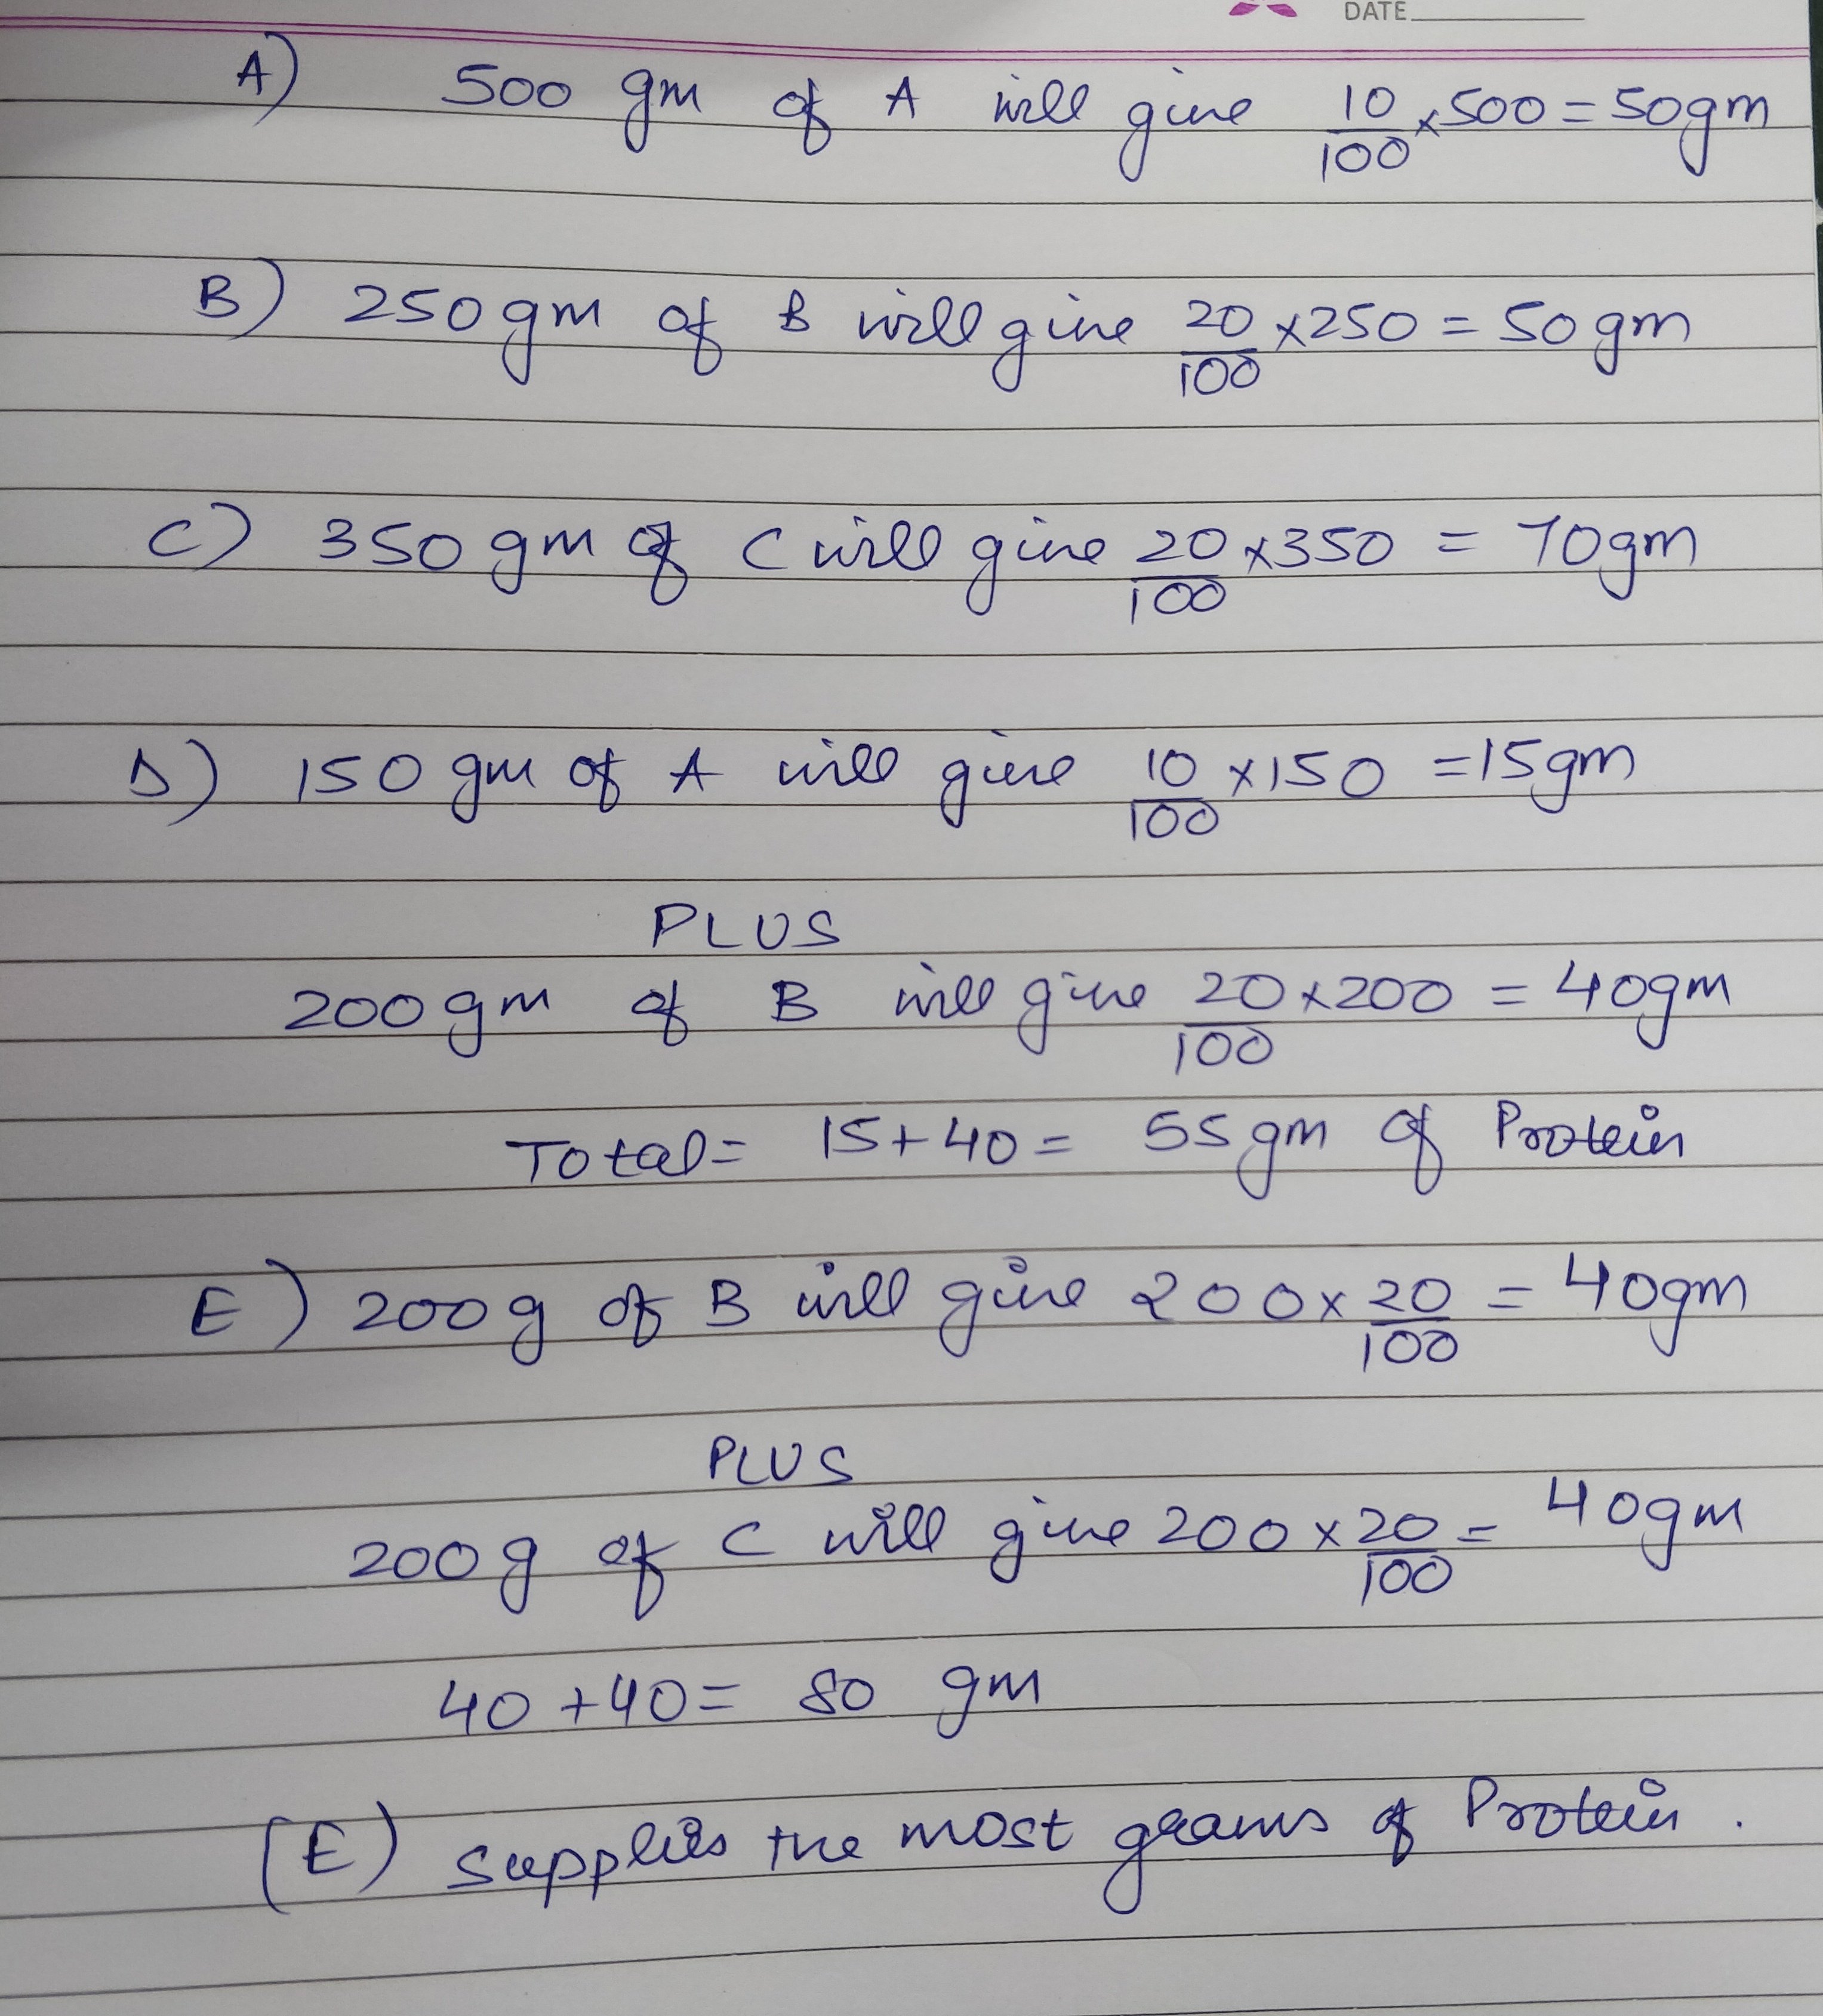 DATE
A) 500 gm of A will give 10/100 × 500 = 50gm
B) 250 gm of B will give 20/100 × 250 = 50 gm
C) 350 gm of C will give 20/100 × 350 = 70gm
D) 150 gm of A will give 10/100 × 150 = 15gm
PLUS
200 gm of B will give 20/100 × 200 = 40gm
Total = 15 + 40 = 55 gm of Protein
E) 200 g of B will give 200 × 20/100 = 40gm
PLUS
200 g of C will give 200 × 20/100 = 40gm
40 + 40 = 80 gm
(E) supplies the most grams of Protein.